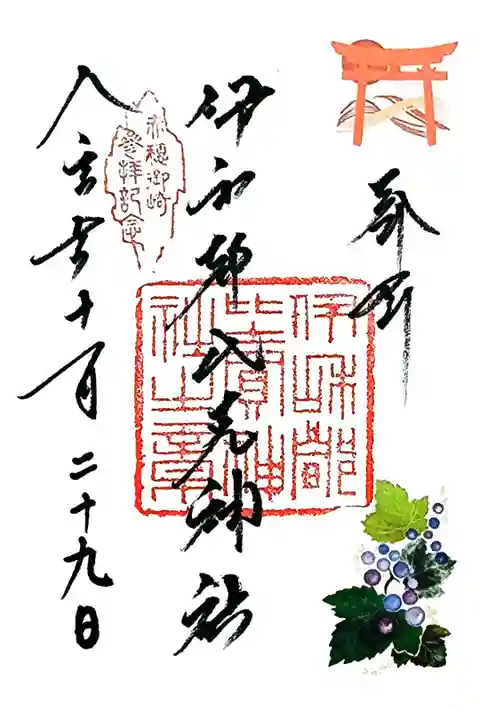 奉拝
伊和都比売神社
伊和都
比賣神
社之章
赤穂御崎
参拝記念
十月二十九日